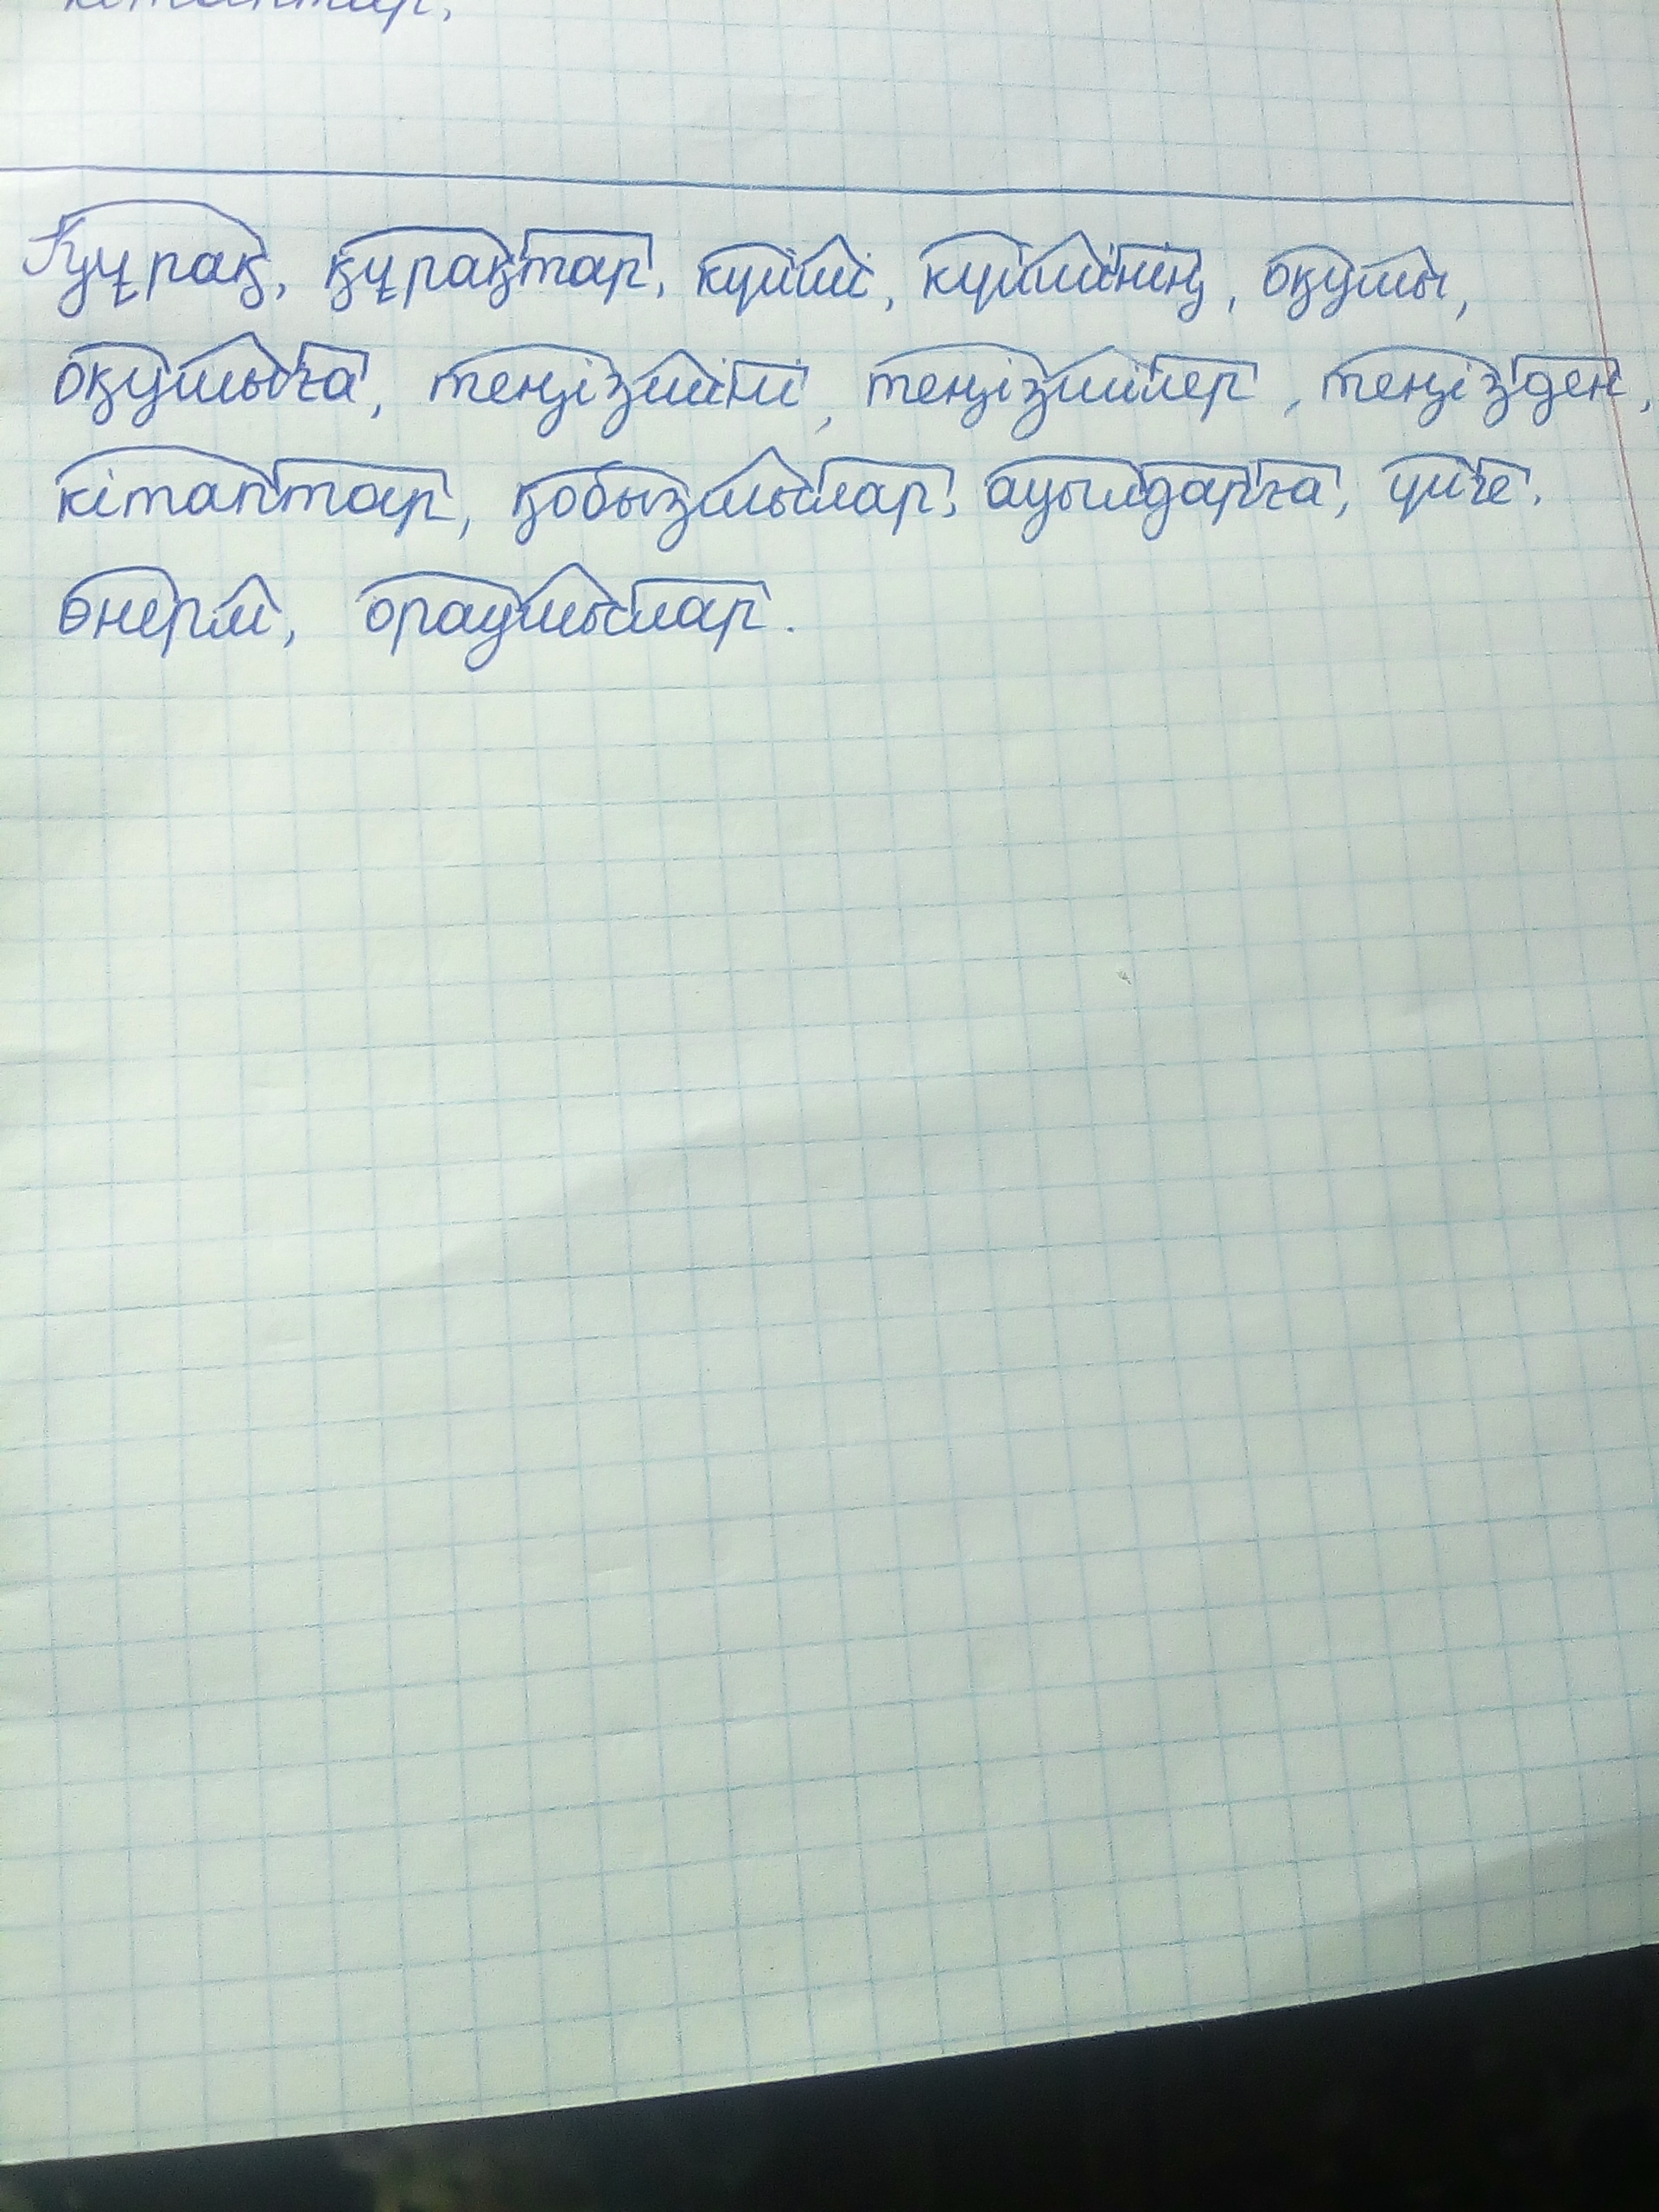 кітаптар,
Құрақ, құрақтар, күйші, күйшінің, оқушы,
оқушыға, теңізшіні, теңізшілер, теңізден,
кітаптар, қобызшылар, ауылдарға, үйге.
өнерлі, ораушылар.